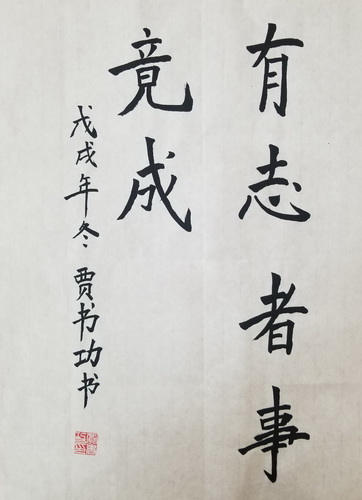 有志者事
竟成
戊戌年冬 贾书功书